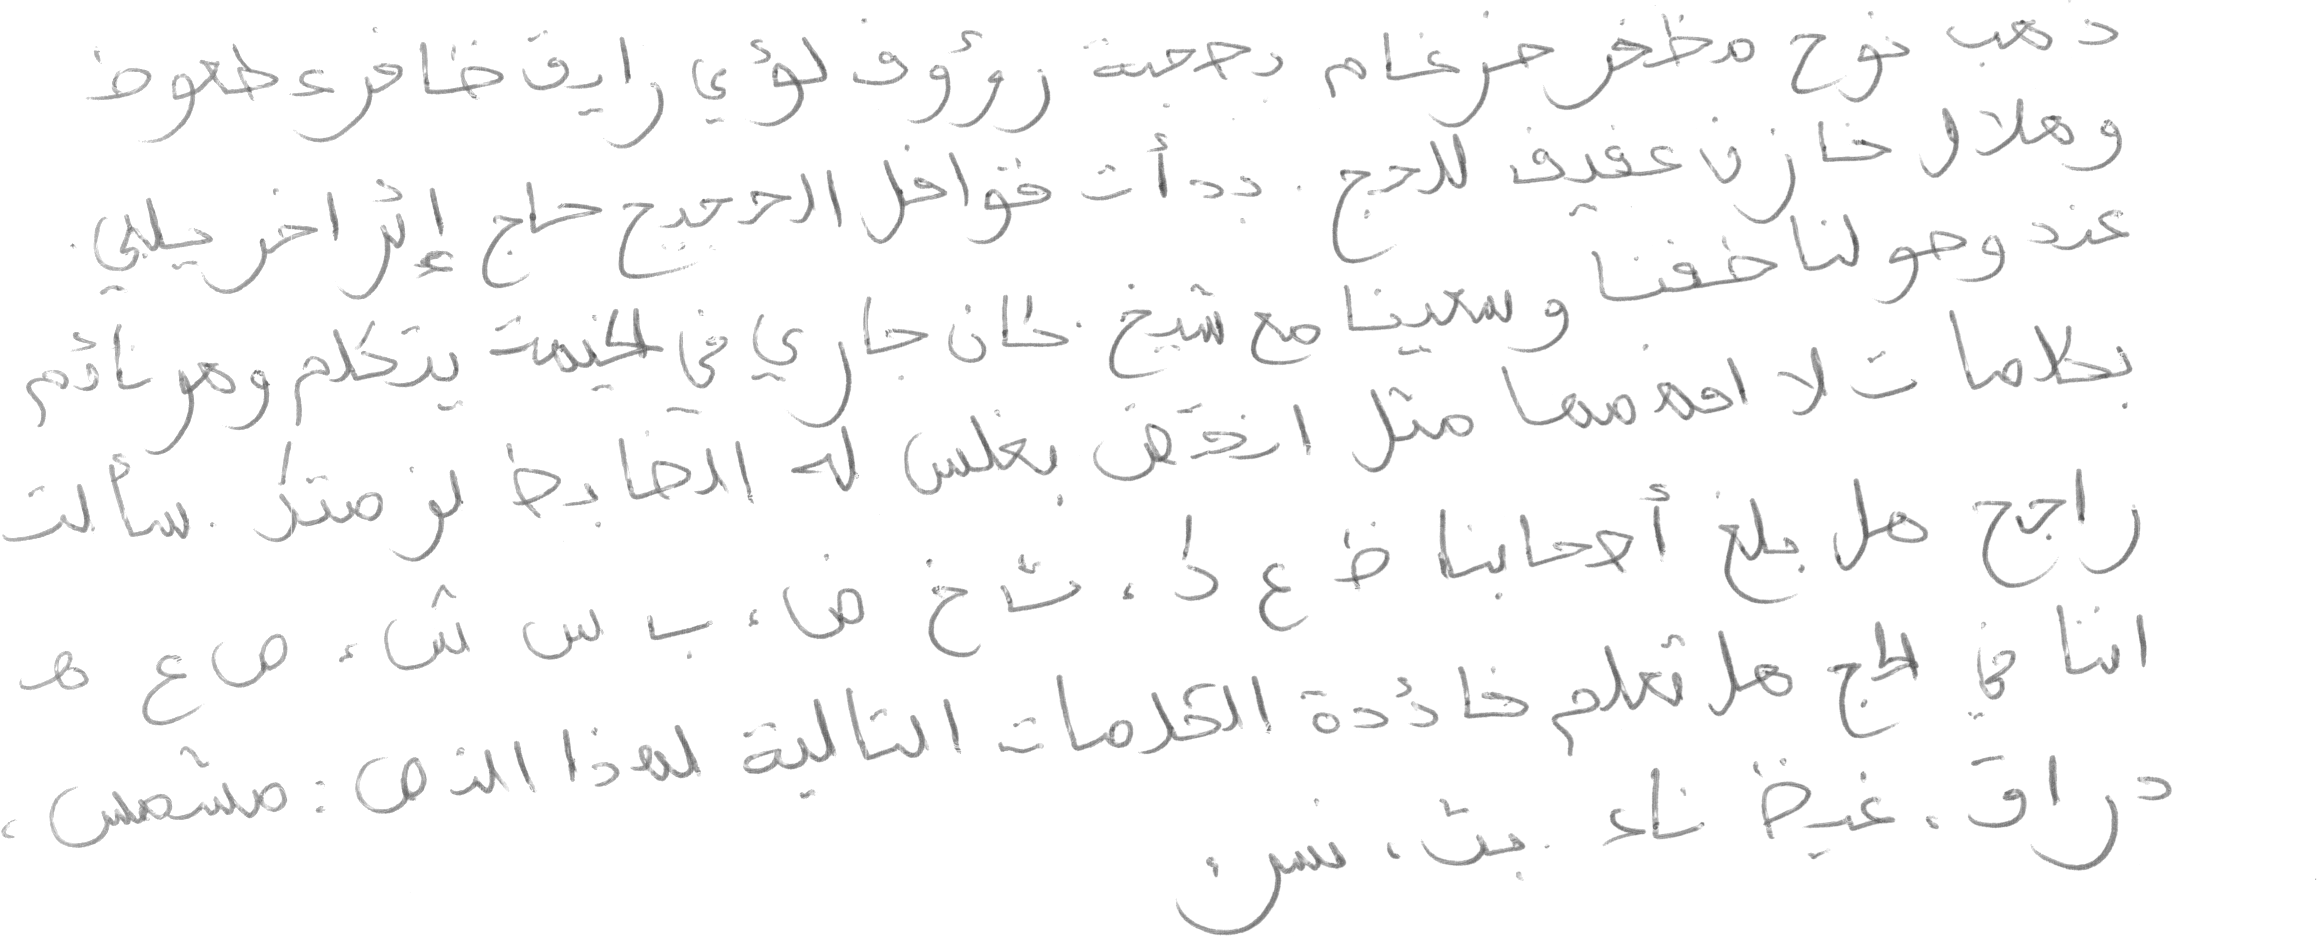 ذهب نوح مظفر ضرغام بصحبة رؤوف لؤي رايق ظافر عطعوط
وهلال خازن عفيف للحج . بدأت قوافل الحجيج حاج إثر اخر يلبي .
عند وصولنا طفنا وسعينا مع شيخ . كان جاري في الخيمة يتكلم وهو نائم
بكلامات لا افهمها مثل انقض بغلس له الضابط لزمتك . سألت
راجح هل بلغ أصحابنا ظ ع ك ، ث خ ض ، ب س ش ، ص ع ه
اننا في الحج هل تعلم فائدة الكلمات التالية لهذا النص : مشمس ،
دراق ، غيظ ناء . بث ، نسر